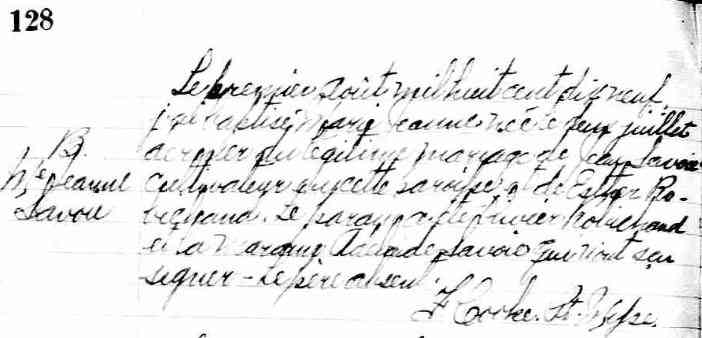 128
Le premier août mil huit cent dix neuf,
j'ai baptisé Marie Jeanne née le deux juillet
dernier du légitime mariage de Jean Savoie
cultivateur en cette paroisse et de Esther Ro-
bichaud. Le parain a été Xavier Robichaud
et la maraine Adelaide Savoie qui n'ont su
signer - Le père absent.
F Cooke. Pt. Miss.
B.
Me Jeanne
Savoie